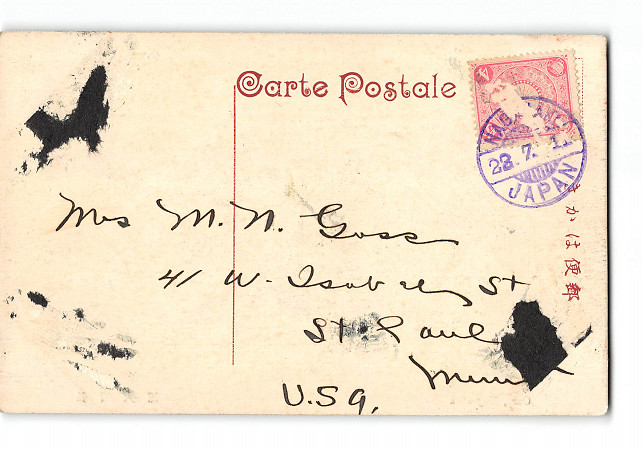 Carte Postale
23. 7. 11
JAPAN
きかは便郵
Mrs M. N. Goss
41 W. Isabel St
St. Paul
Minn
U.S.A.